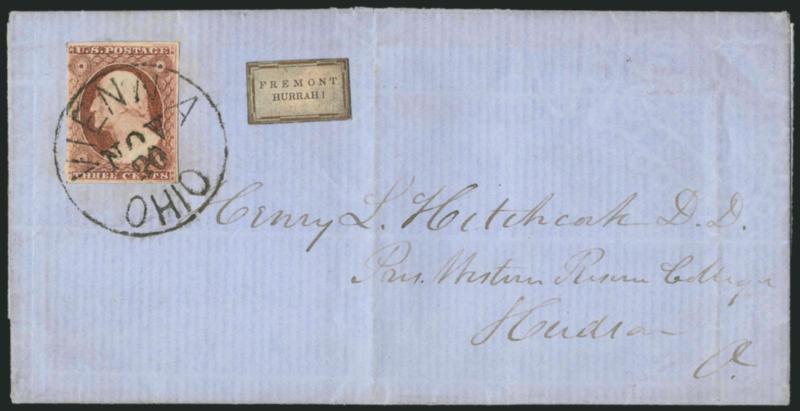 U.S. POSTAGE
THREE CENTS
VIENNA
NOV
20
OHIO
FREMONT
HURRAH!
Henry L. Hitchcock D. D.
Pres. Western Reserve College
Hudson
O.